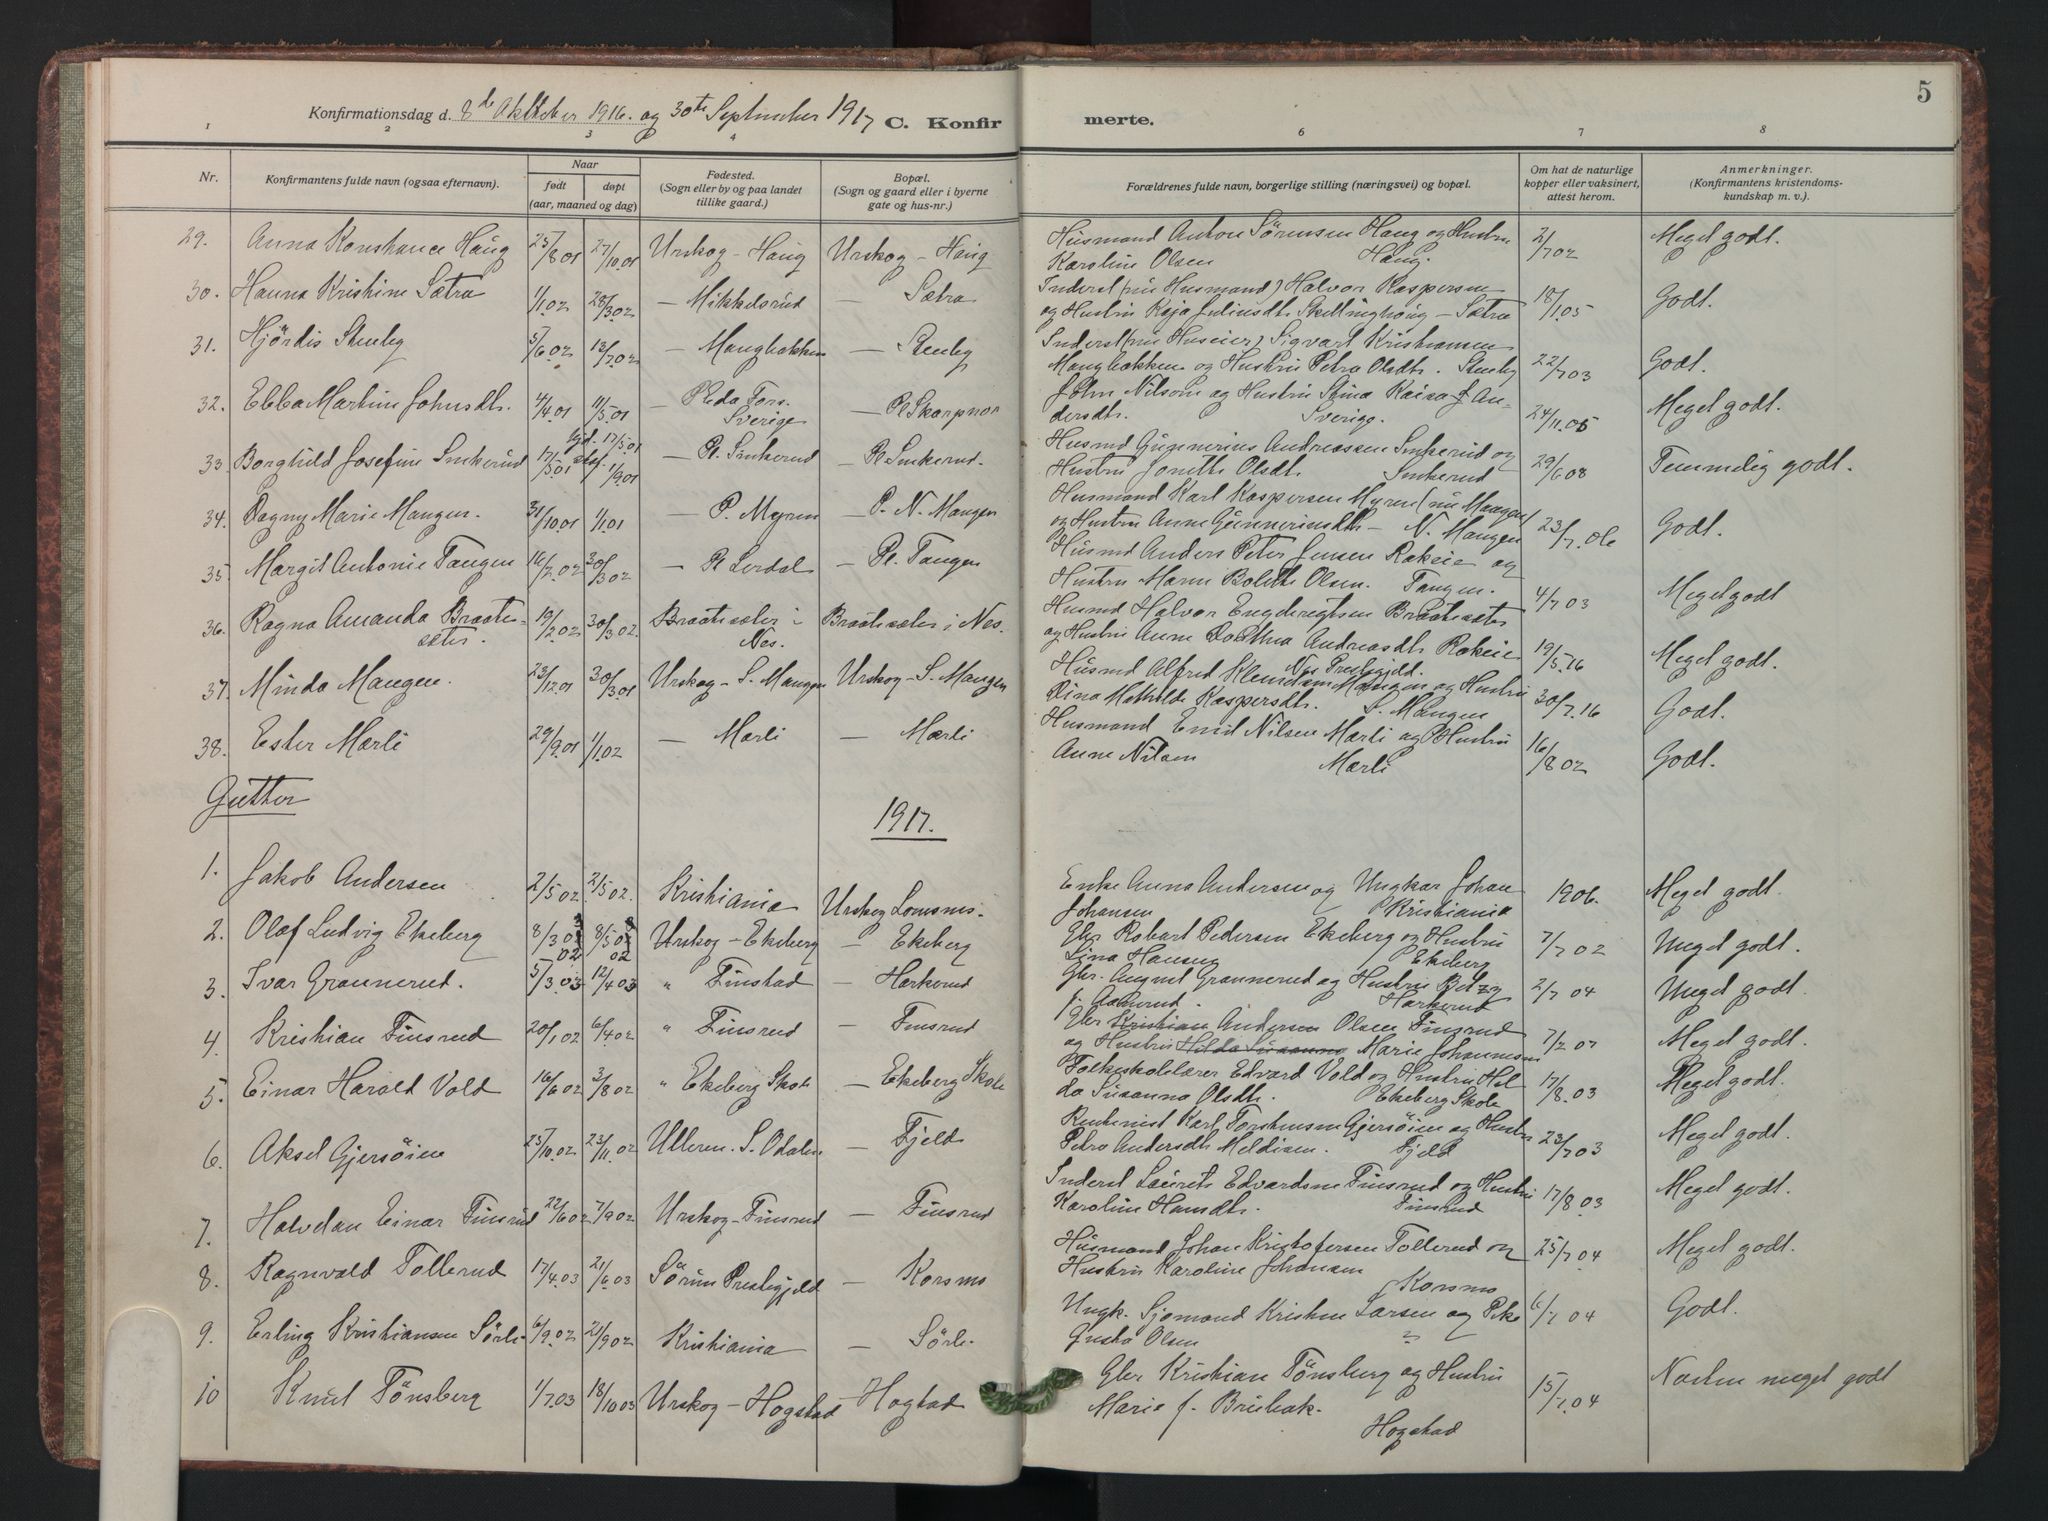 5
Konfirmationsdag d. 8de Oktober 1916 og 30te September 1917 C. Konfirmerte.
1 2 3 4 6 7 8
Nr. Konfirmantens fulde navn (ogsaa efternavn). Naar født døpt (aar, maaned og dag) Fødested. (Sogn eller by og paa landet tillike gaard.) Bopæl. (Sogn og gaard eller i byerne gate og hus-nr.) Forældrenes fulde navn, borgerlige stilling (næringsvei) og bopæl. Om hat de naturlige kopper eller vaksinert, attest herom. Anmerkninger. (Konfirmantens kristendomskundskap m. v.).
29. Anna Konstance Haug 25/8 01 27/10.01 Urskog - Haug Urskog - Haug Husmand Anton Sørensen Haug og Hustru Karoline Olsen Haug. 2/7 02 Meget godt.
30. Hanna Kristine Sætra 1/1.02 28/3.02 — Mikkelsrud — Sætra Inderst (nu Husmand) Halvor Kaspersen og Hustru Kaja Juliusdtr. Skellinghaug - Sætra 18/1.05 Godt.
31. Hjördis Stenby 5/6.02 13/7.02 — Mangbakken — Stenby Inderst (nu Huseier) Sigvart Kristiansen Mangbakken og Hustru Petra Olsdtr. Stenby 22/7 03 Godt.
32. Ebba Martine Johnsdtr. 4/4.01 11/5.01 — Eda Fors. Sverige — Pl Skarpnor John Nilsson og Hustru Stina Kaisa f. Andersdtr. Sverige. 24/11.05 Meget godt.
33. Borghild Josefine Smkerud 17/5.01 hjd. 17/5.01 1/9.01 — Pl. Smkerud — Pl Smkerud. Husmd Gunnerius Andreassen Smkerud og Hustru Jonette Olsdtr. Smkerud 29/6 08 Temmelig godt.
34. Dagny Marie Mangen. 31/10.01 1/1.01 — P. Myren — P. N. Mangen Husmand Karl Kaspersen Myren (nu Mangen) og Hustru Anne Gunneriusdtr - N. Mangen 23/7.06 Godt.
35. Margit Antonie Tangen 16/2.02 30/3 02 — Pl Lerdal — Pl. Tangen Husmd Anders Peter Jensen Rakeie og Hustru Maren Bolette Olsen. Tangen. 4/7 03 Meget godt
36. Ragna Amanda Braatesæter. 19/2.02 30/3 02. Braatesæter i Nes. Braatesæter i Nes. Husmd Halvor Engebregtsen Braatesæter og Hustru Anne Dorthea Andreasdtr Rakeie Nes Prestegjeld. 19/5.16 Meget godt.
37. Minda Mangen. 23/12.01 30/3.01 Urskog - S. Mangen Urskog - S. Mangen Husmd Alfred Klemetsen Mangen og Hustru Dina Mathilde Kaspersdtr. S. Mangen 30/7.16 Godt.
38. Ester Mærli 29/9.01 1/1.02 — Mærli — Mærli Husmand Emil Nilsen Mærli og Hustru Anne Nilsen Mærli 16/8 02 Godt.
Gutter
1917.
1. Jakob Andersen 2/5 02 2/5 02. Kristiania Urskog Lomsnes. Enke Anna Andersen og Ungkar Johan Johansen Kristiania 1906. Meget godt.
2. Olaf Ludvig Ekeberg 8/3 02 8/5 02 Urskog - Ekeberg — Ekeberg Gbr Robert Pedersen Ekeberg og Hustru Lina Hansen Ekeberg 7/7 02 Meget godt.
3. Ivar Grannerud. 5/3.03 12/4 03 " Finstad — Harkerud Gbr. August Grannerud og Hustru Betzy f. Aamerud. Harkerud 2/7 04 Meget godt.
4. Kristian Finsrud 20/1.02 6/4 02 " Finsrud — Finsrud Gbr Kristian Andersen Olsen Finsrud og Hustru Hilda Susanna Marie Johannesen 7/2 07 Meget godt.
5. Einar Harald Vold 16/6 02 3/8 02 " Ekeberg Skole — Ekeberg Skole Folkeskolelærer Edvard Vold og Hustru Hilda Susanna Olsdtr. Ekeberg Skole 17/8.03 Meget godt.
6. Aksel Gjersöien 25/10.02 23/11.02 Ulleren. S. Odalen — Fjeld Rentenist Karl Torstensen Gjersöien og Hustru Petra Andersdtr Meldieen. Fjeld 23/7 03 Meget godt.
7. Halvdan Einar Finsrud 22/6 02 7/9 02 Urskog - Finsrud — Finsrud Inderst Laurits Edvardsen Finsrud og Hustru Karoline Hansdtr. Finsrud 17/8.03 Meget godt.
8. Ragnvald Tollerud 17/4.03 21/6 03 Sörum Prestegjeld — Korsmo Husmand Johan Kristofersen Tollerud og Hustru Karoline Johansen Korsmo 25/7 04 Meget godt.
9. Erling Kristiansen Sörli 6/9 02 21/9 02 Kristiania — Sörli Ungk. Sjømand Kristian Larsen og Pike Gusta Olsen 6/7 04 Godt.
10 Knut Tönsberg 1/7.03 18/10 03 Urskog - Hogstad — Hogstad Gbr Kristian Tönsberg og Hustru Marie f. Brubak. Hogstad 15/7.04 Næsten meget godt